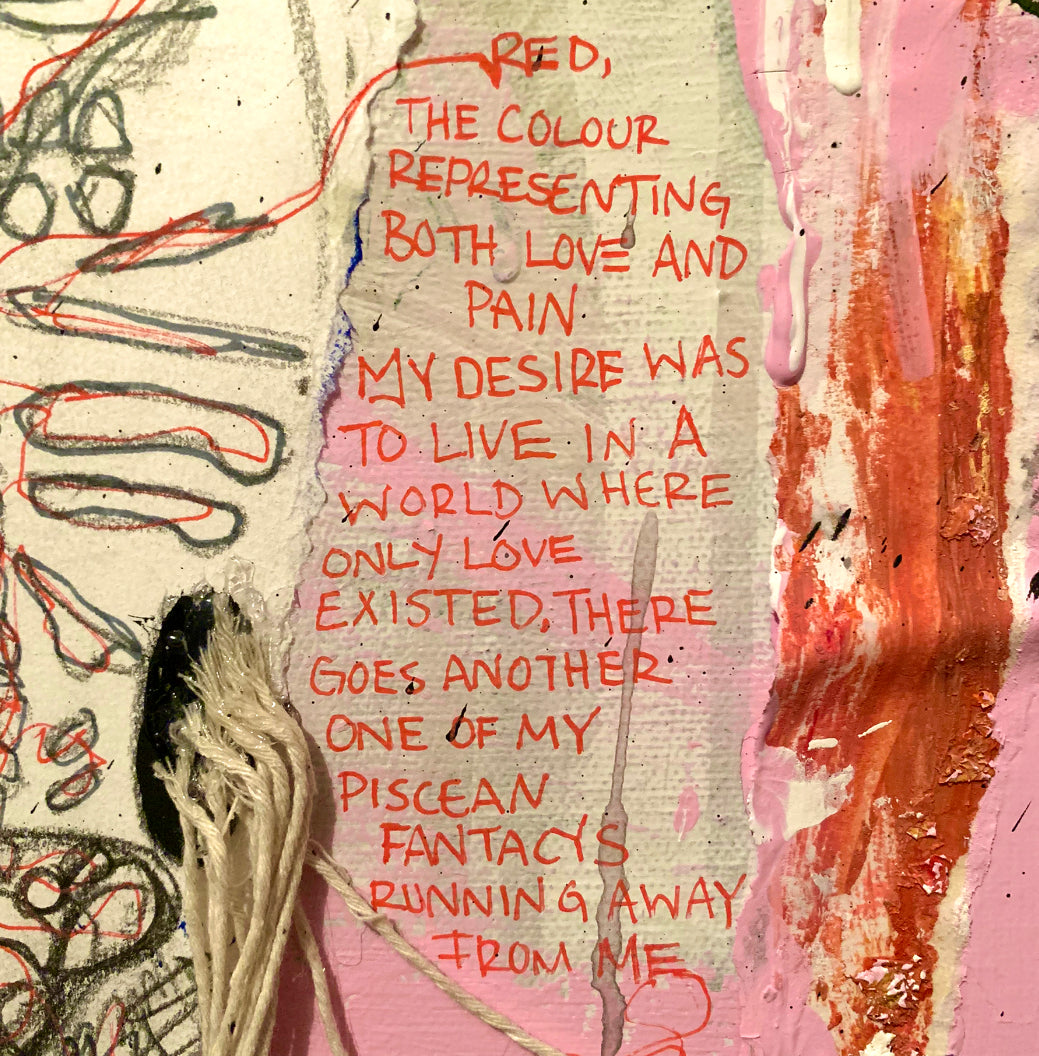 RED,
THE COLOUR
REPRESENTING
BOTH LOVE AND
PAIN
MY DESIRE WAS
TO LIVE IN A
WORLD WHERE
ONLY LOVE
EXISTED, THERE
GOES ANOTHER
ONE OF MY
PISCEAN
FANTACYS
RUNNING AWAY
FROM ME